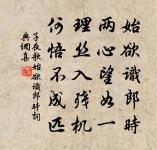 始欲識郎時
兩心望如一
理絲入殘機
何悟不成匹
子夜歌始欲識郎時詞